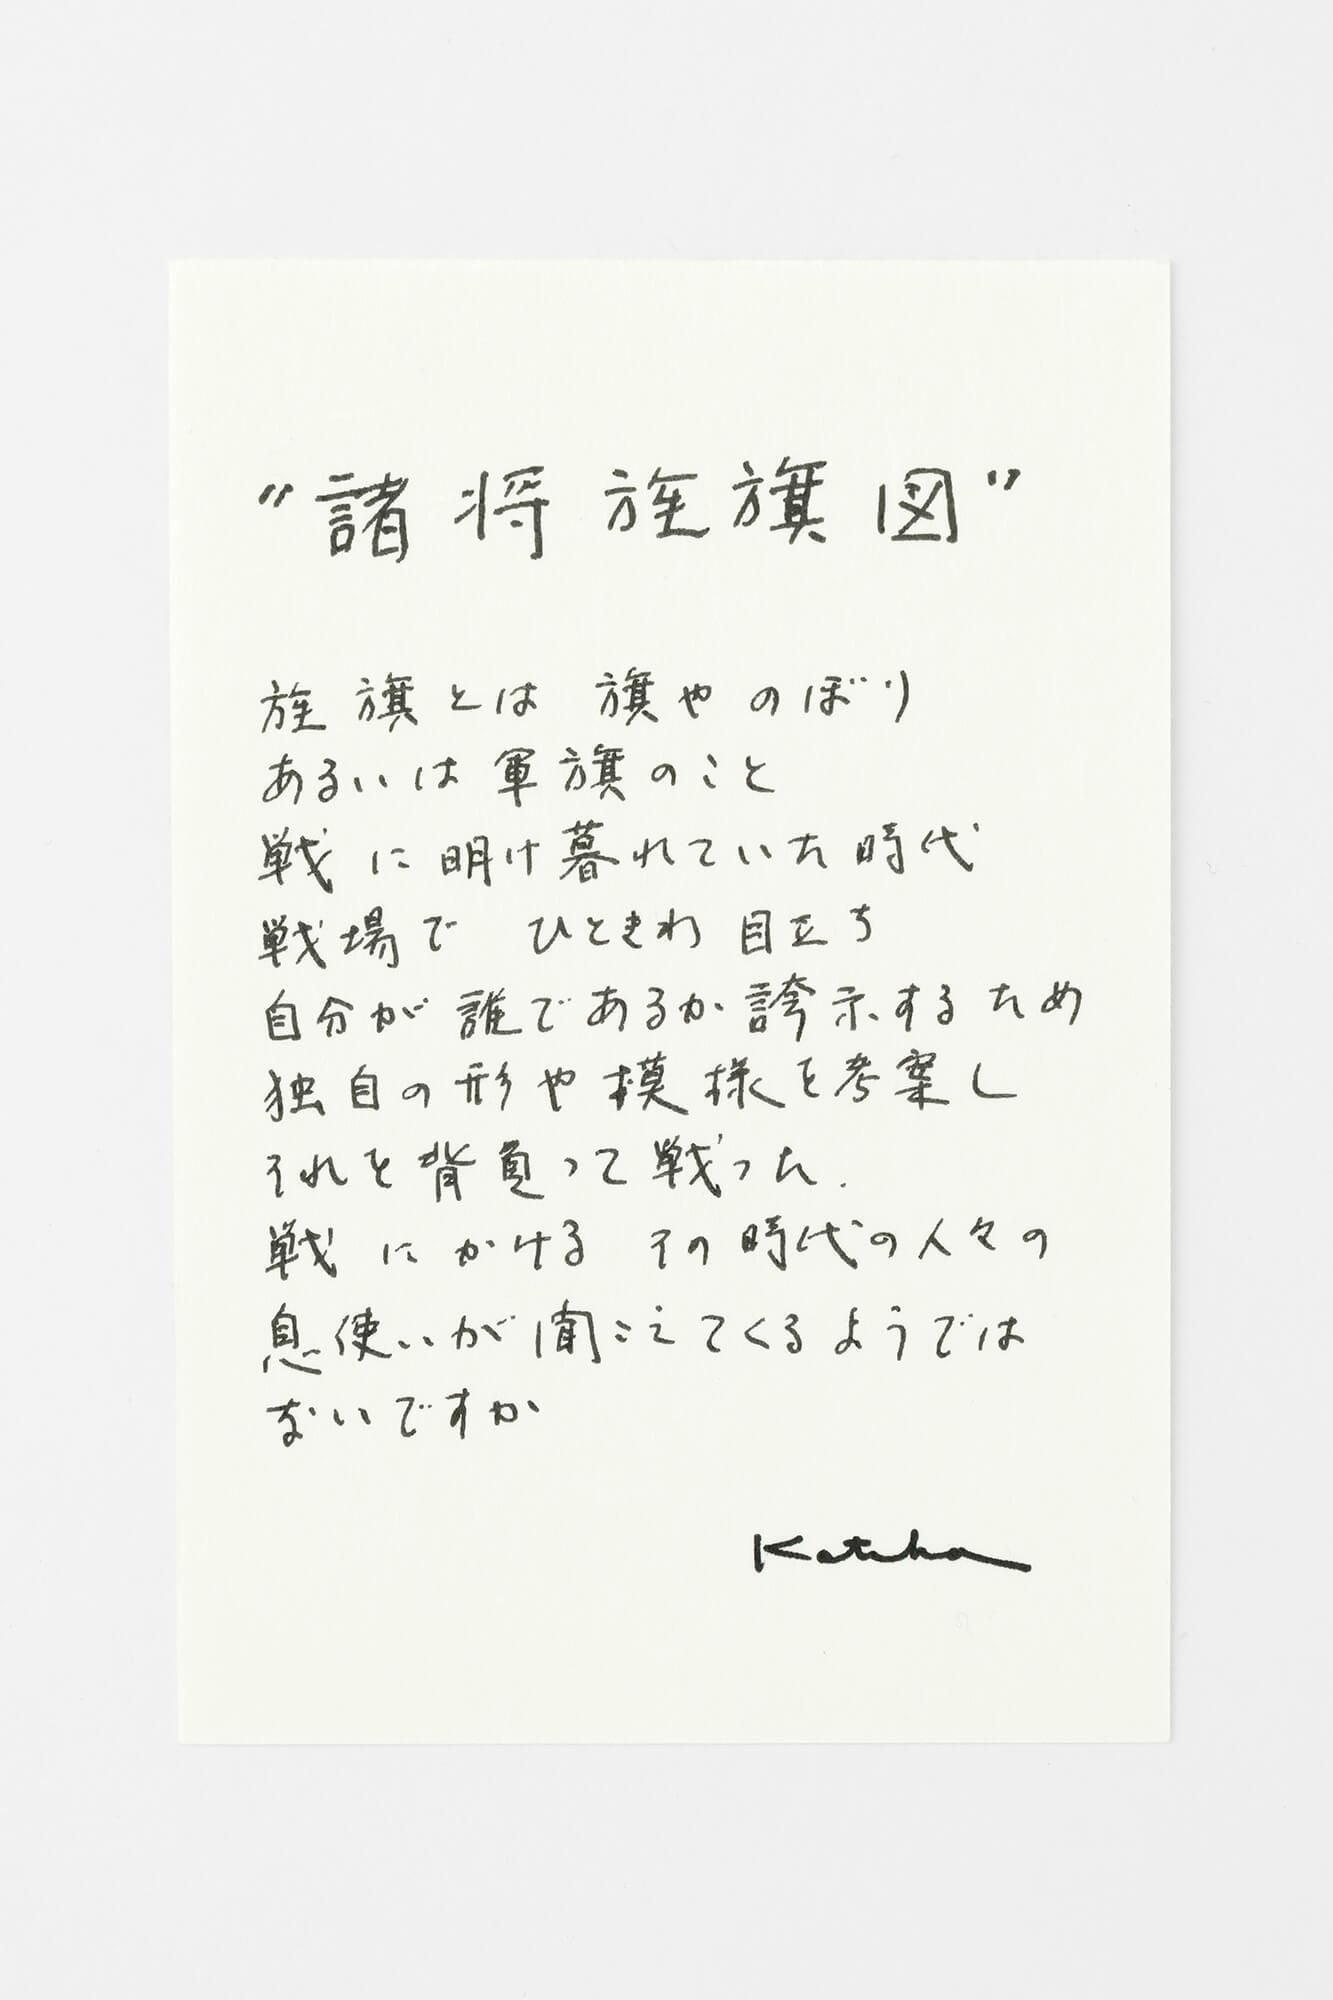 "諸将旌旗図"
旌旗とは 旗やのぼり
あるいは軍旗のこと
戦に明け暮れていた時代
戦場で ひときわ目立ち
自分が誰であるか誇示するため
独自の形や模様を考案し
それを背負って戦った.
戦にかける その時代の人々の
息使いが聞こえてくるようでは
ないですか